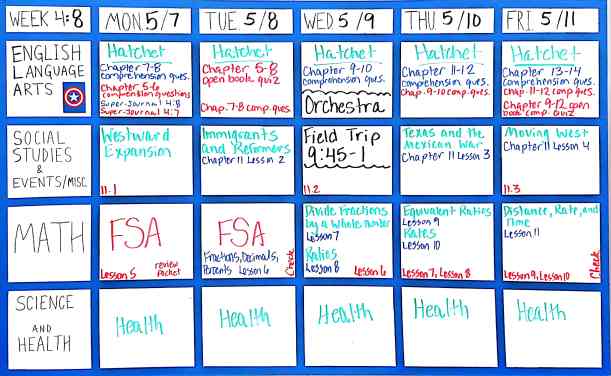 WEEK 4:8
MON. 5/7
TUE. 5/8
WED 5/9
THU. 5/10
FRI. 5/11
ENGLISH
LANGUAGE
ARTS
Hatchet
Chapter 7-8
comprehension ques.
Chapter 5-6
comprehension questions
Super-Journal 4:8
Super-Journal 4:7
Hatchet
Chapter 5-8
open book quiz
Chap. 7-8 comp. ques.
Hatchet
Chapter 9-10
comprehension ques.
Orchestra
Hatchet
Chapter 11-12
comprehension ques.
Chap. 9-10 comp. ques.
Hatchet
Chapter 13-14
comprehension ques.
Chap. 11-12 comp. ques.
Chapter 9-12 open
book comp. quiz
SOCIAL
STUDIES
&
EVENTS/MISC.
Westward
Expansion
11.1
Immigrants
and Reformers
Chapter 11 Lesson 2
Field Trip
9:45-1
11.2
Texas and the
Mexican War
Chapter 11 Lesson 3
Moving West
Chapter 11 Lesson 4
11.3
MATH
FSA
Lesson 5
review
packet
FSA
Fractions, Decimals,
Percents Lesson 6
Check
Divide Fractions
by a Whole Number
Lesson 7
Ratios
Lesson 8
Lesson 6
Equivalent Ratios
Lesson 9
Rates
Lesson 10
Lesson 7, Lesson 8
Distance, Rate, and
Time
Lesson 11
Lesson 9, Lesson 10
Check
SCIENCE
AND
HEALTH
Health
Health
Health
Health
Health